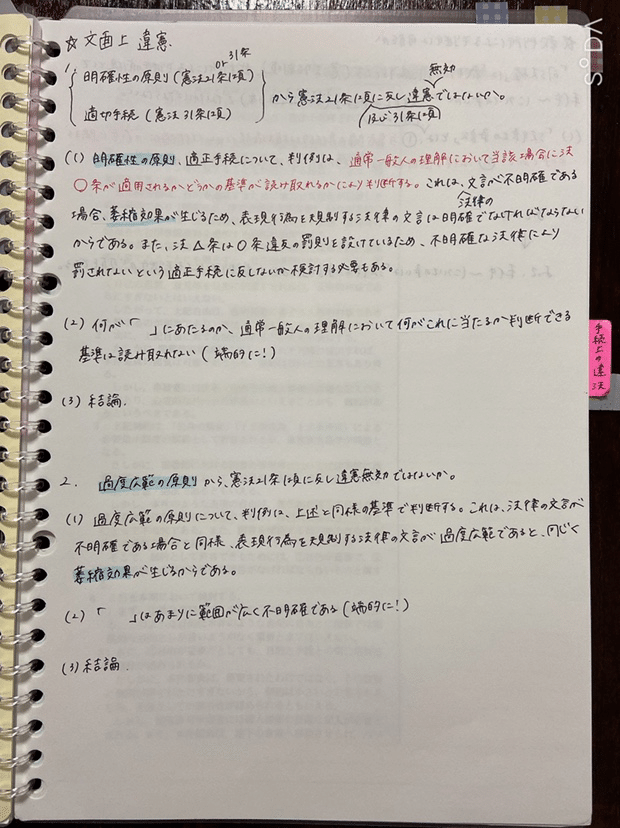 ☆文面上違憲
or 31条
1. 明確性の原則(憲法21条1項)
無効
から憲法21条1項に反し違憲ではないか。
適切手続(憲法31条1項)
(ほじ31条1項)
(1) 明確性の原則、適正手続について、判例は、通常一般人の理解において当該場合に法
〇条が適用されるかどうかの基準が読み取れるかにより判断する。これは、文言が不明確である
法律の
場合、萎縮効果が生じるため、表現行為を規制する法律の文言は明確でなければならない
からである。また、法△条は〇条違反の罰則を設けているため、不明確な法律により
罰されないという適正手続に反しないか検討する必要もある。
(2) 何が「 」にあたるのか、通常一般人の理解において何がこれに当たるか判断できる
基準は読み取れない(端的に!)
(3) 結論.
2. 過度広範の原則から、憲法21条1項に反し違憲無効ではないか。
(1) 過度広範の原則について、判例は、上述と同様の基準で判断する。これは、法律の文言が
不明確である場合と同様、表現行為を規制する法律の文言が過度広範であると、同じく
萎縮効果が生じるからである。
(2) 「 」はあまりに範囲が広く不明確である(端的に!)
(3) 結論.
手続上の違法
SODA